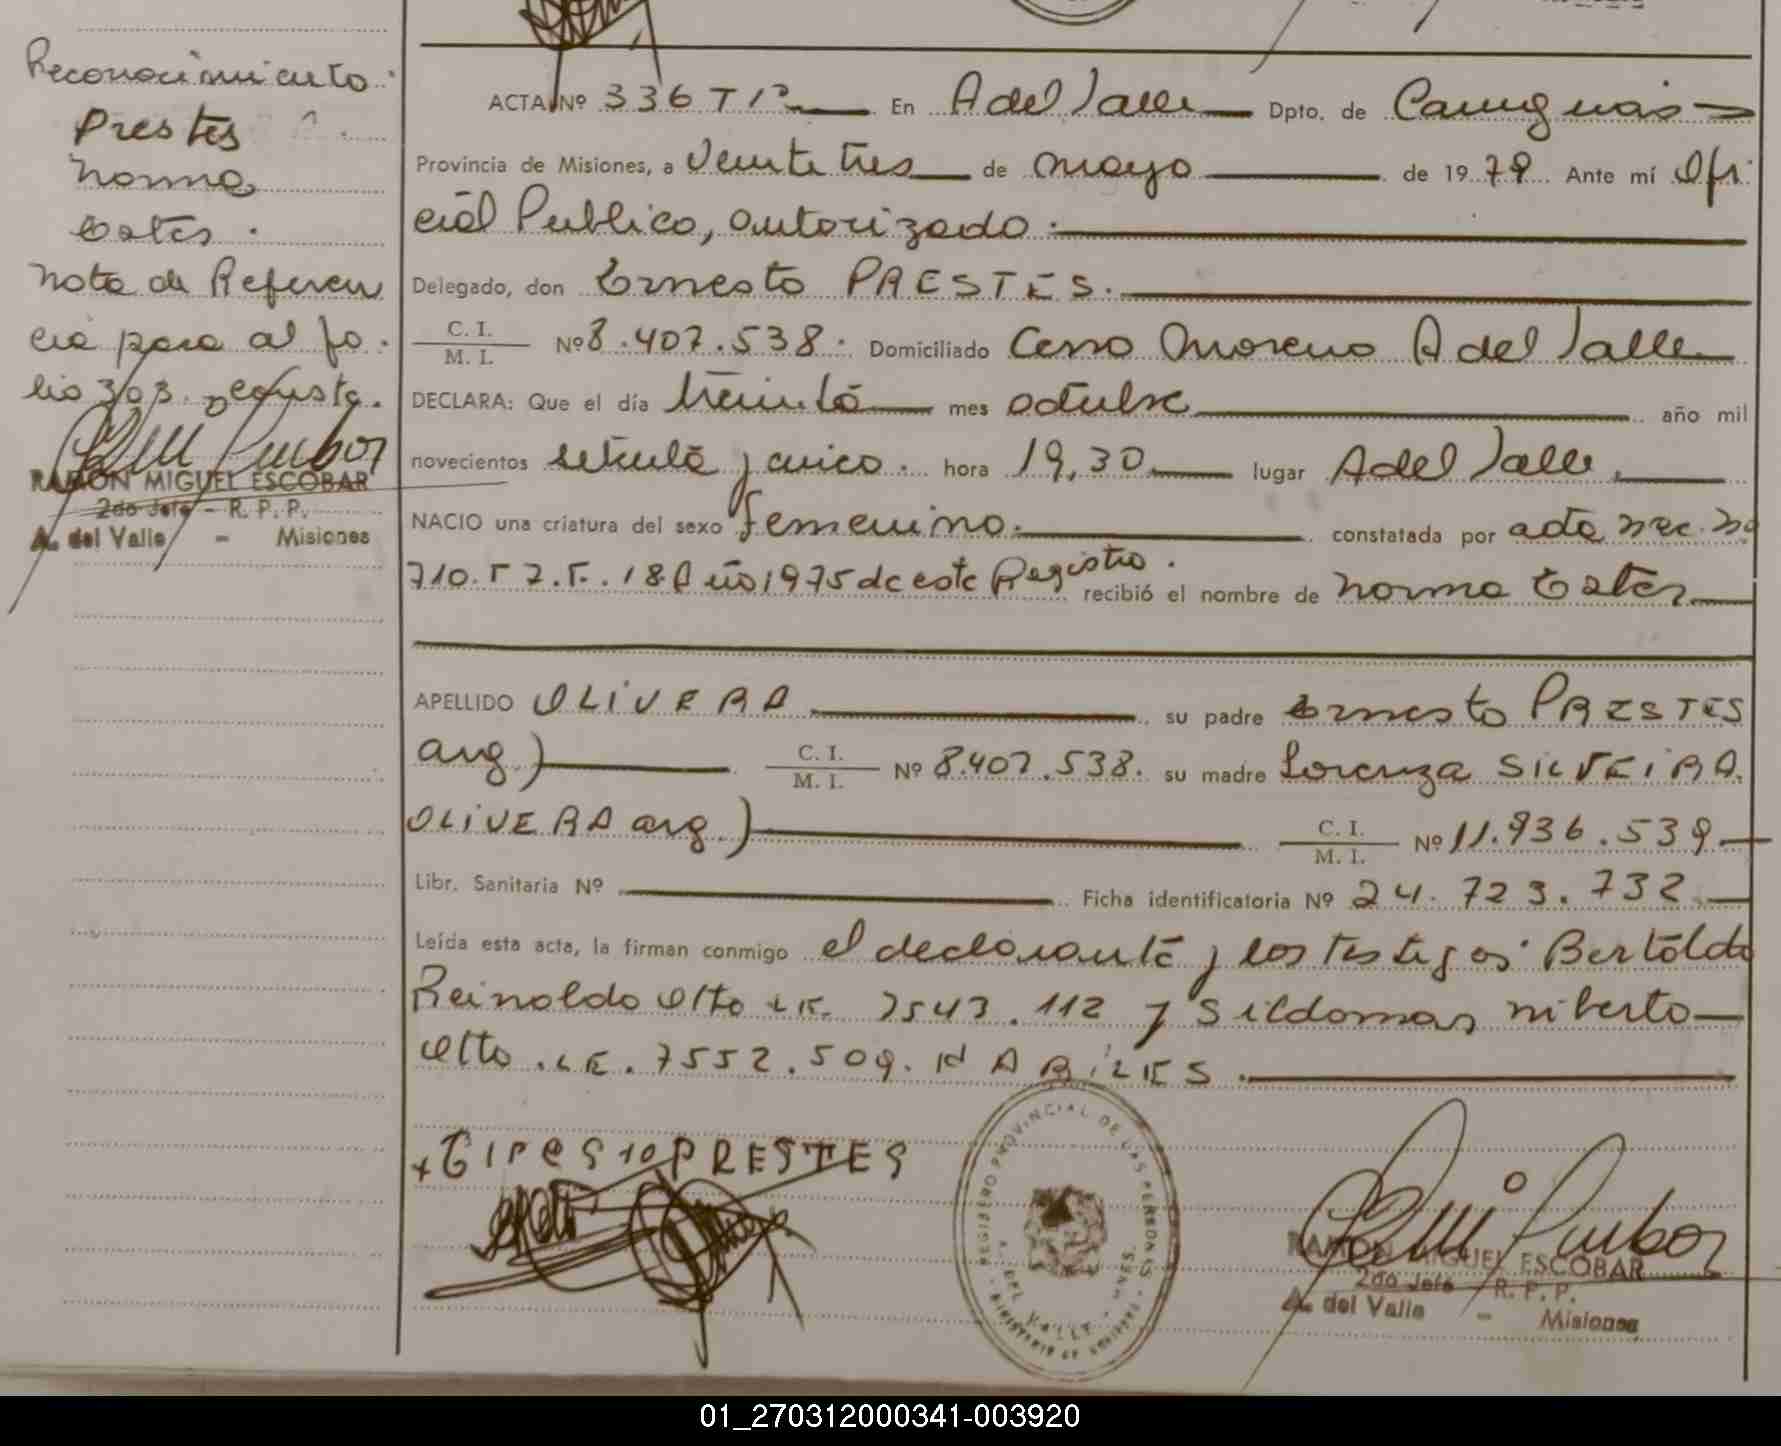 Reconocimiento:
Prestes
Norma
Ester.
Nota de Referen
cia para al fo.
lio 303.
RAMON MIGUEL ESCOBAR
2do Jefe - R. P. P.
A. del Valle - Misiones
ACTA Nº 336 T1º En A del Valle Dpto. de Cainguas
Provincia de Misiones, a veinte tres de mayo de 1979 Ante mí Ofi
cial Publico, autorizado.
Delegado, don Ernesto PRESTES.
C. I.
M. I. Nº 8.407.538. Domiciliado Cerro Moreno A del Valle
DECLARA: Que el día treinta mes octubre año mil
novecientos setenta y cinco. hora 19,30 lugar A del Valle.
NACIO una criatura del sexo femenino. constatada por acta nac. No
710. T 2. F. 18. Año 1975 de este Registro. recibió el nombre de Norma Ester
APELLIDO OLIVERA su padre Ernesto PRESTES
arg.) C. I.
M. I. Nº 8.407.538. su madre Lorenza SILVEIRA.
OLIVERA arg.) C. I.
M. I. Nº 11.936.539
Libr. Sanitaria Nº Ficha identificatoria Nº 24.723.732
Leída esta acta, la firman conmigo el declarante y los testigos: Bertoldo
Reinoldo Otto LE. 7543.112 y Sildomar Niberto
Otto. LE. 7552.509. HABILES.
PRESTES
REGISTRO PROVINCIAL DE LAS PERSONAS
A. DEL VALLE - MNES.
MINISTERIO DE GOBIERNO
RAMON MIGUEL ESCOBAR
2do Jefe R. P. P.
A. del Valle - Misiones
01_270312000341-003920